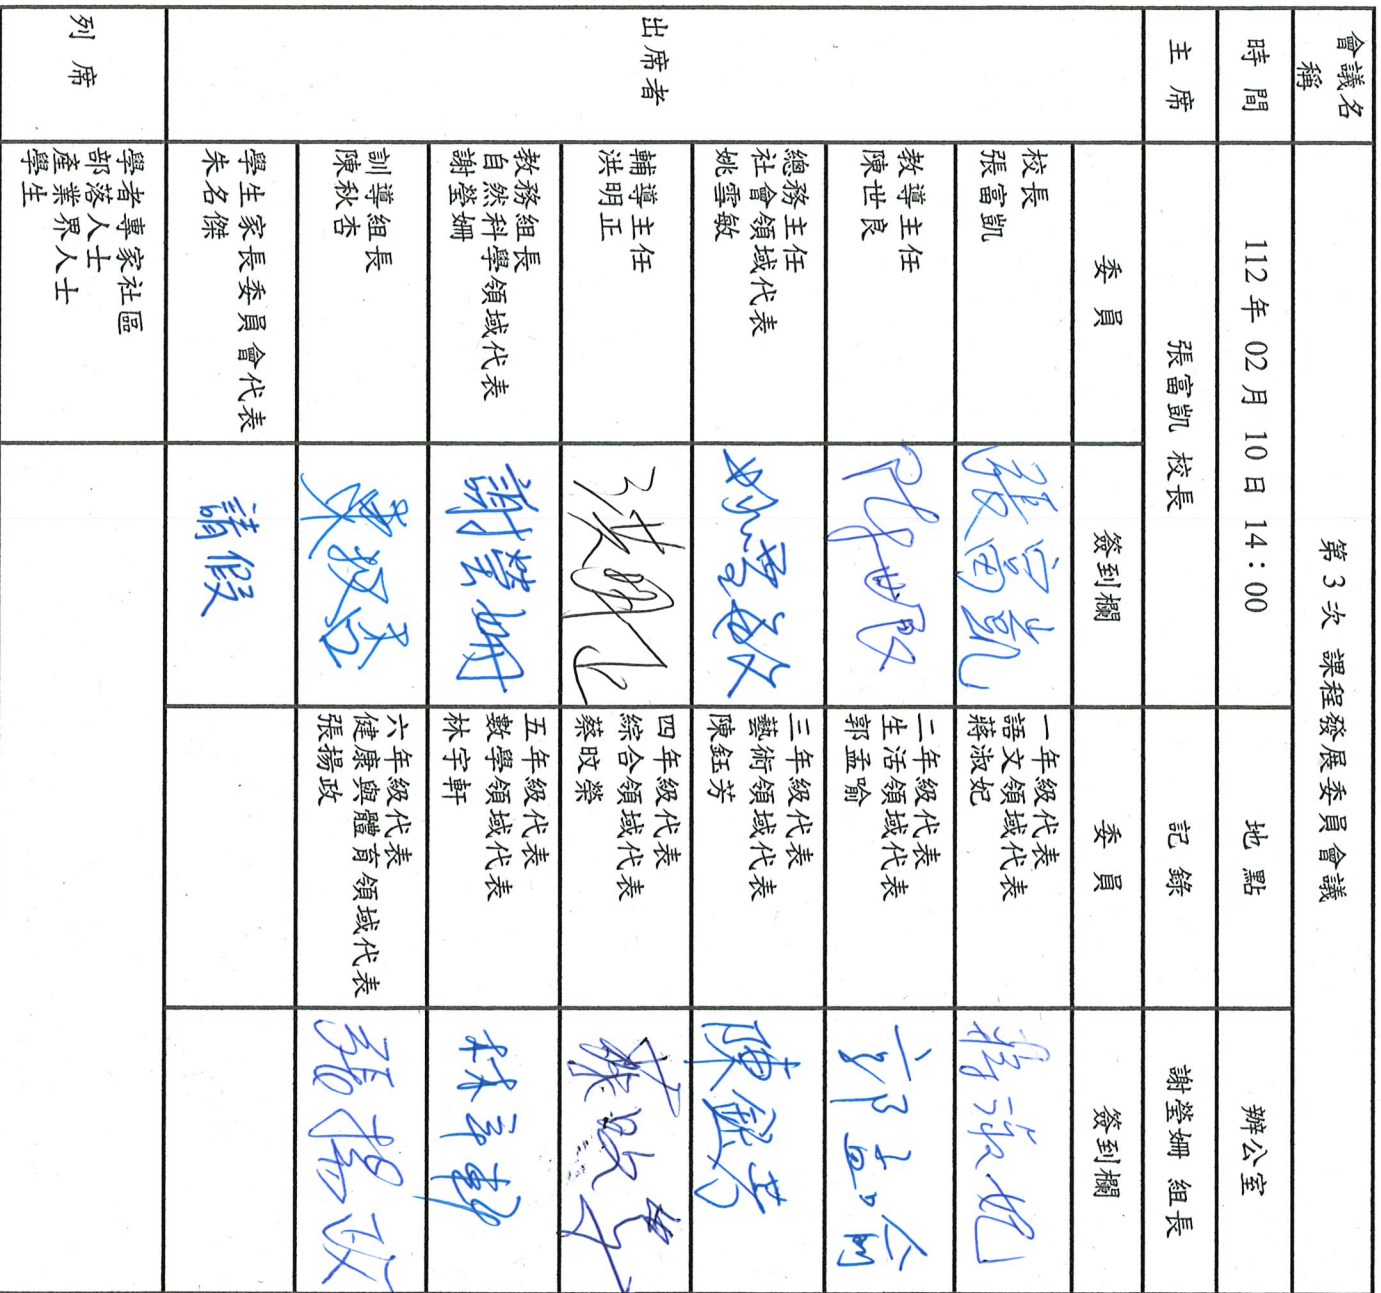 會議名稱
第 3 次 課程發展委員會會議
時 間
112 年 02 月 10 日 14：00
地 點
辦公室
主 席
張富凱 校長
記 錄
謝瑩姍 組長
出席者
委 員
簽到欄
委 員
簽到欄
校長
張富凱
張富凱
一年級代表
語文領域代表
蔣淑妃
蔣淑妃
教導主任
陳世良
陳世良
二年級代表
生活領域代表
郭孟喻
郭孟喻
總務主任
社會領域代表
姚雪敏
姚雪敏
三年級代表
藝術領域代表
陳鈺芳
陳鈺芳
輔導主任
洪明正
洪明正
四年級代表
綜合領域代表
蔡旼縈
教務組長
自然科學領域代表
謝瑩姍
謝瑩姍
五年級代表
數學領域代表
林宇軒
林宇軒
訓導組長
陳秋杏
陳秋杏
六年級代表
健康與體育領域代表
張揚政
張揚政
學生家長委員會代表
朱名傑
請假
列 席
學者專家社區
部落人士
產業界人士
學生